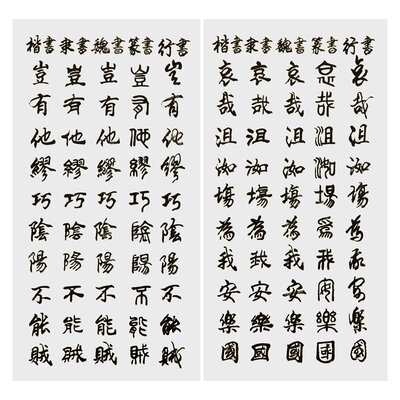 楷書 隶書 魏書 篆書 行書
豈 豈 豈 豈 豈
有 有 有 有 有
他 他 他 他 他
繆 繆 繆 繆 繆
巧 巧 巧 巧 巧
陰 陰 陰 陰 陰
陽 陽 陽 陽 陽
不 不 不 不 不
能 能 能 能 能
賊 賊 賊 賊 賊
楷書 隶書 魏書 篆書 行書
哀 哀 哀 哀 哀
哉 哉 哉 哉 哉
沮 沮 沮 沮 沮
洳 洳 洳 洳 洳
場 場 場 場 場
為 為 為 為 為
我 我 我 我 我
安 安 安 安 安
樂 樂 樂 樂 樂
國 國 國 國 國